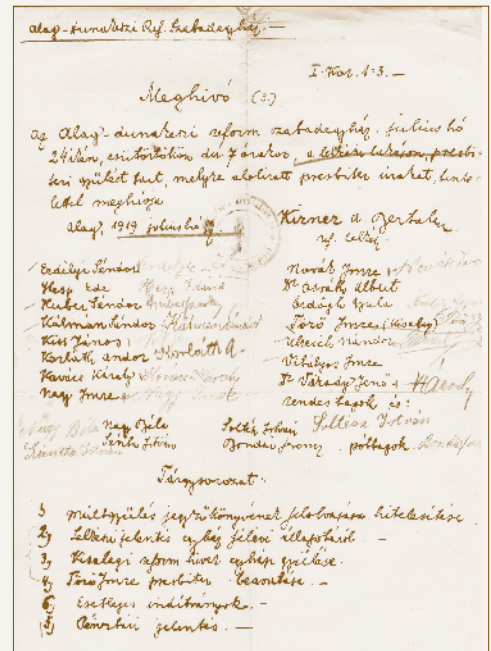 Alag-dunakeszi Ref. Szabadegyház.—
I. Kor. 1:3.—
Meghivó (3.)
Az Alag-dunakeszi reform szabadegyház julius hó
24ikén, csütörtökön du 7 órakor, a lelkészlakáson, presbi-
teri gyülést tart, melyre alolirott presbiter urakat, tisz-
lettel meghivja
Alag, 1919 julius hó
Kirner A. Bertalan
ref. lelkész
Erdélyi Sándor
Hesz Ede
Huber Sándor
Kálmán Sándor Kálmán Sándor
Kiss János
Korláth Andor Korláth A.
Kovács Károly Kovács Károly
Nagy Imre Nagy Imre
Novák Imre Novák Imre
Dr Osváth Albert
Ördögh Gyula
Törő Imre (Kisalag)
Ulreich Nándor
Vitályos Imre
Dr Váradi Jenő
rendes tagok és:
Nagy Béla Nagy Béla
Szente István Szente István
Soltész István Soltész István
Bondár Ferenc póttagok
Tárgysorozat:
1, multgyülés jegyzőkönyvének felolvasása hitelesitése
2, Lelkészi jelentés egyház félévi állapotáról. —
3, Kisalagi reform. hivek egyház gyülése.
4, Törő Imre presbiter beavatása. —
6, Esetleges inditványok. —
(5) Pénztári jelentés. —